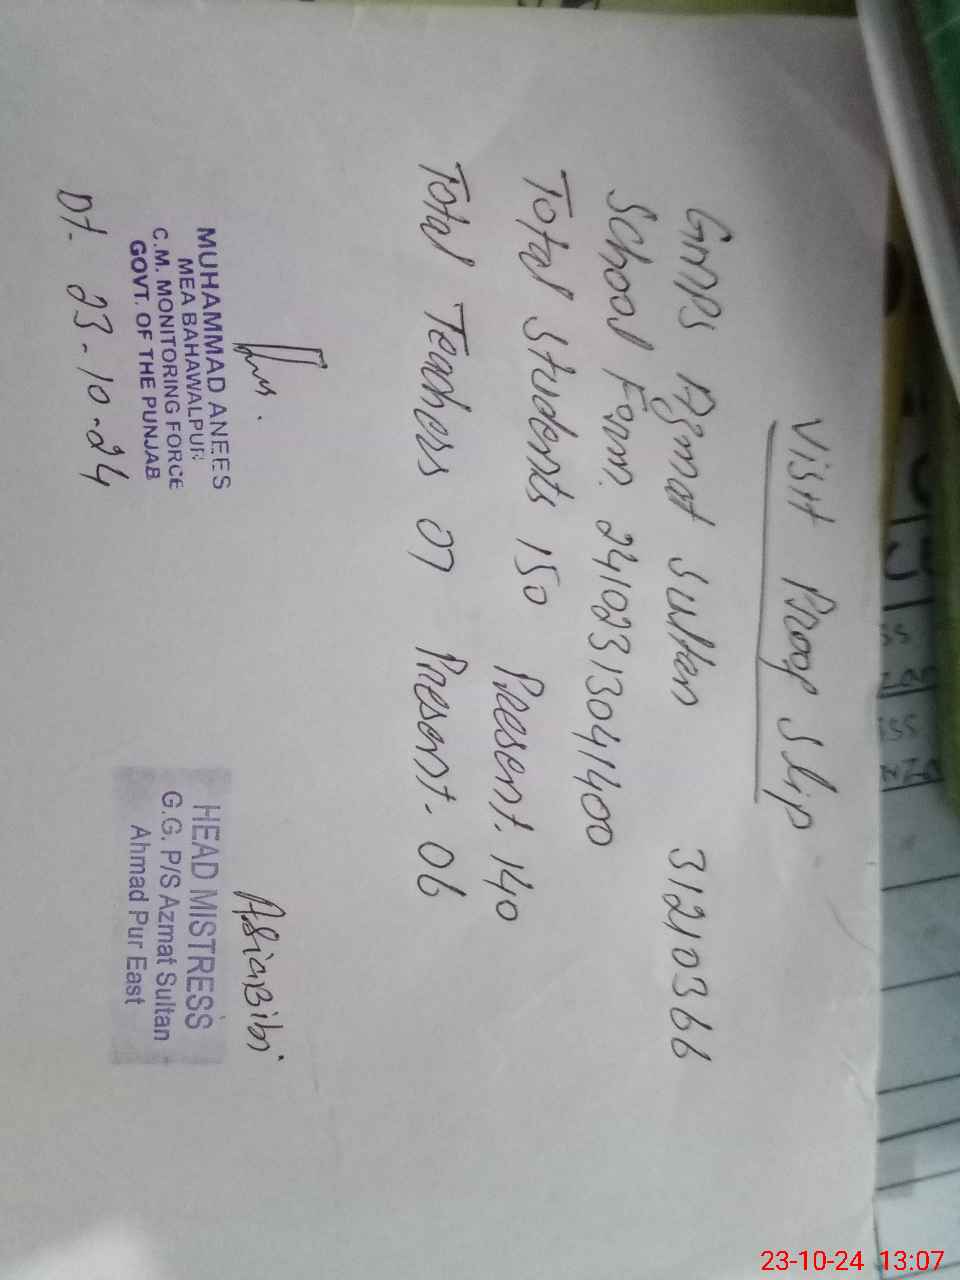 Visit Proof Slip
GMPS Azmat Sultan 31210366
School Form. 24102313041400
Total Students 150 Present. 140
Total Teachers 07 Present. 06
MUHAMMAD ANEES
MEA BAHAWALPUR
C.M. MONITORING FORCE
GOVT. OF THE PUNJAB
Dt. 23-10-24
Asia Bibi
HEAD MISTRESS
G.G. P/S Azmat Sultan
Ahmad Pur East
23-10-24 13:07